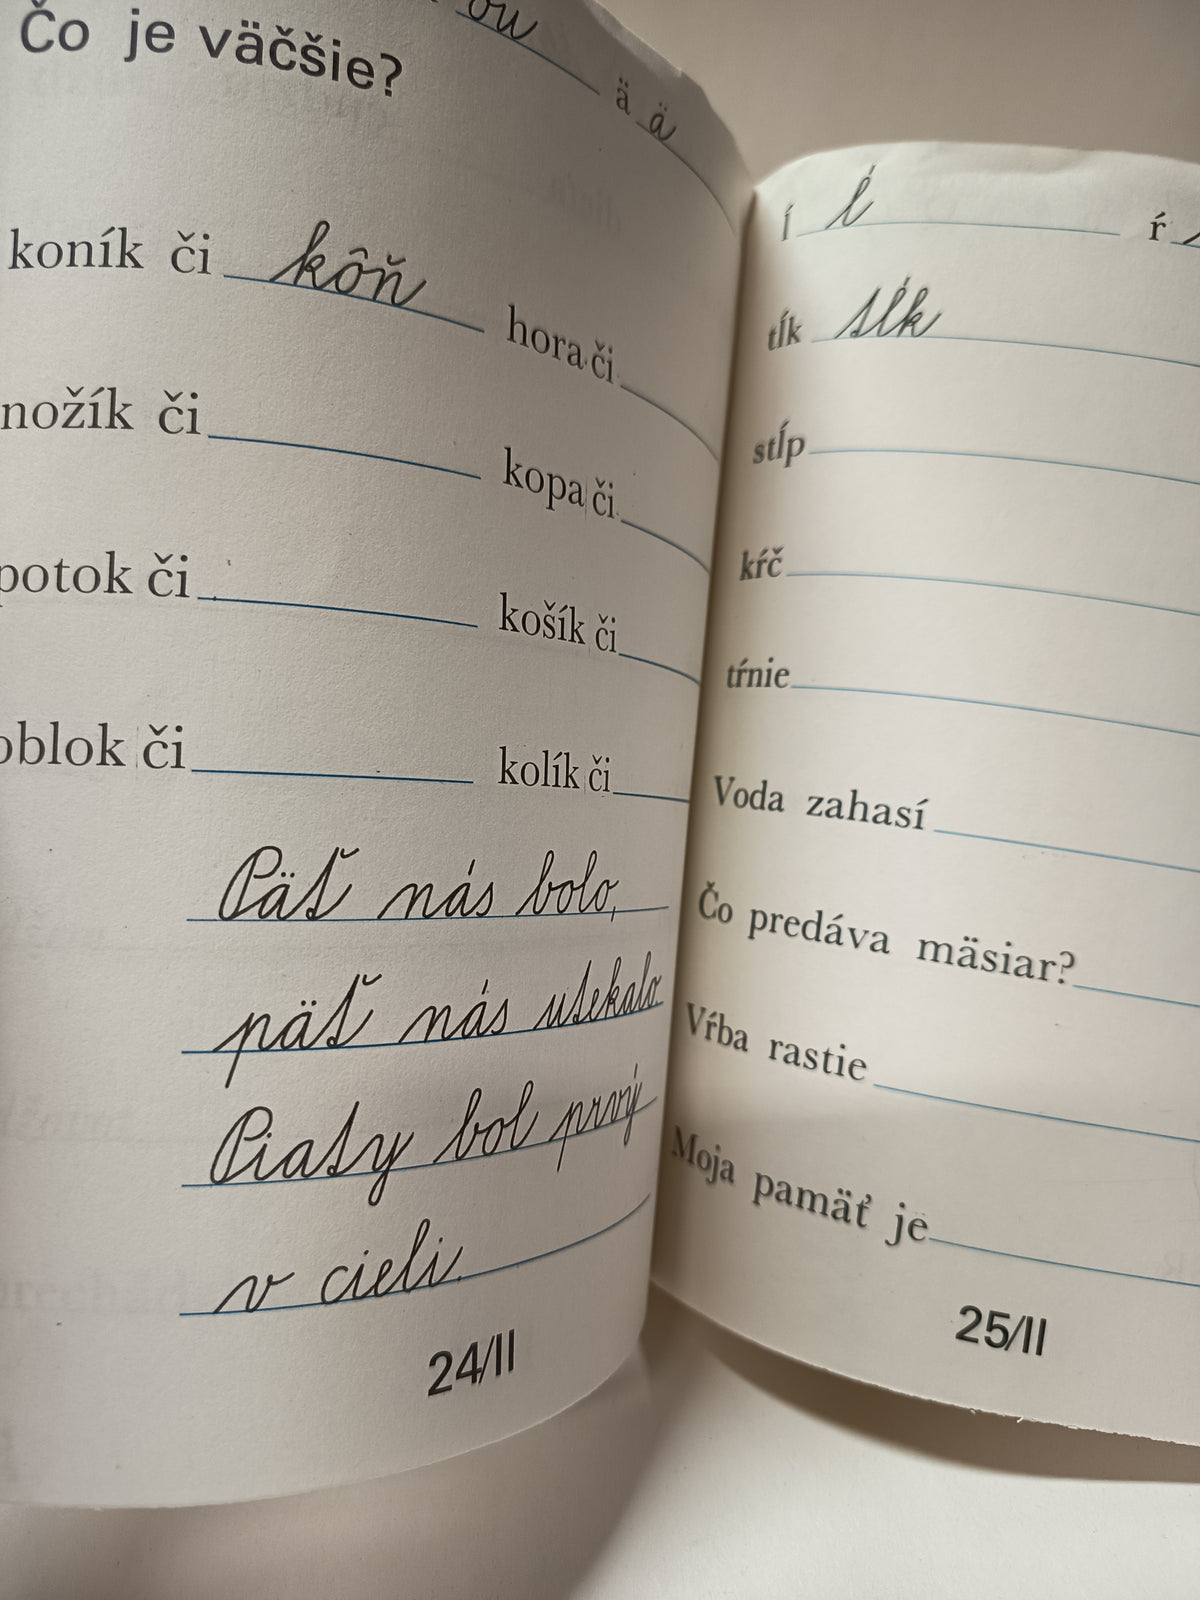 ou
Čo je väčšie?
ä ä
koník či kôň hora či
nožík či kopa či
potok či košík či
oblok či kolík či
Päť nás bolo,
päť nás utekalo.
Piaty bol prvý
v cieli.
24/II
ĺ ĺ ŕ
tĺk tĺk
stĺp
kŕč
tŕnie
Voda zahasí
Čo predáva mäsiar?
Vŕba rastie
Moja pamäť je
25/II